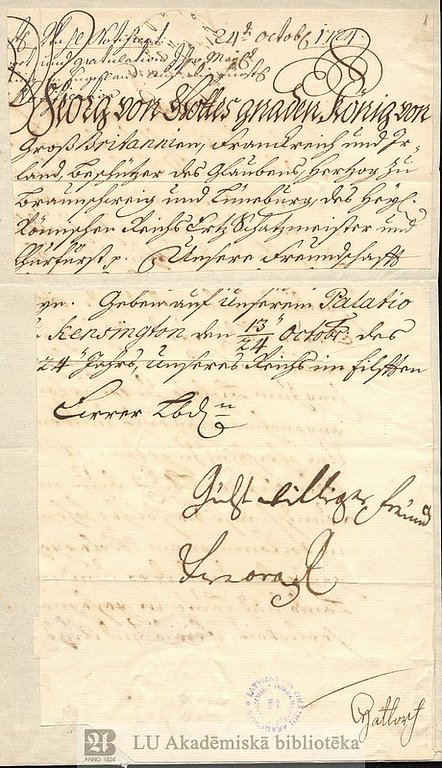 24t. Octob. 1724
Georg von Gottes gnaden, König von
Groß Britannien, Franckreich und Ir-
land, Beschützer des Glaubens, Hertzog zu
Braunschweig und Lüneburg, des Heyl.
Römischen Reichs Ertz Schatzmeister und
Churfürst p. Unsere Freundschafft
Geben auf Unserem Palatio
Kensington den 13/24 Octobr. des
24 Jahrs, Unseres Reichs im Eilfften
Eurer Lbd.n
williger Freund
Georg R
Hattorf
ANNO 1524
LU Akadēmiskā bibliotēka